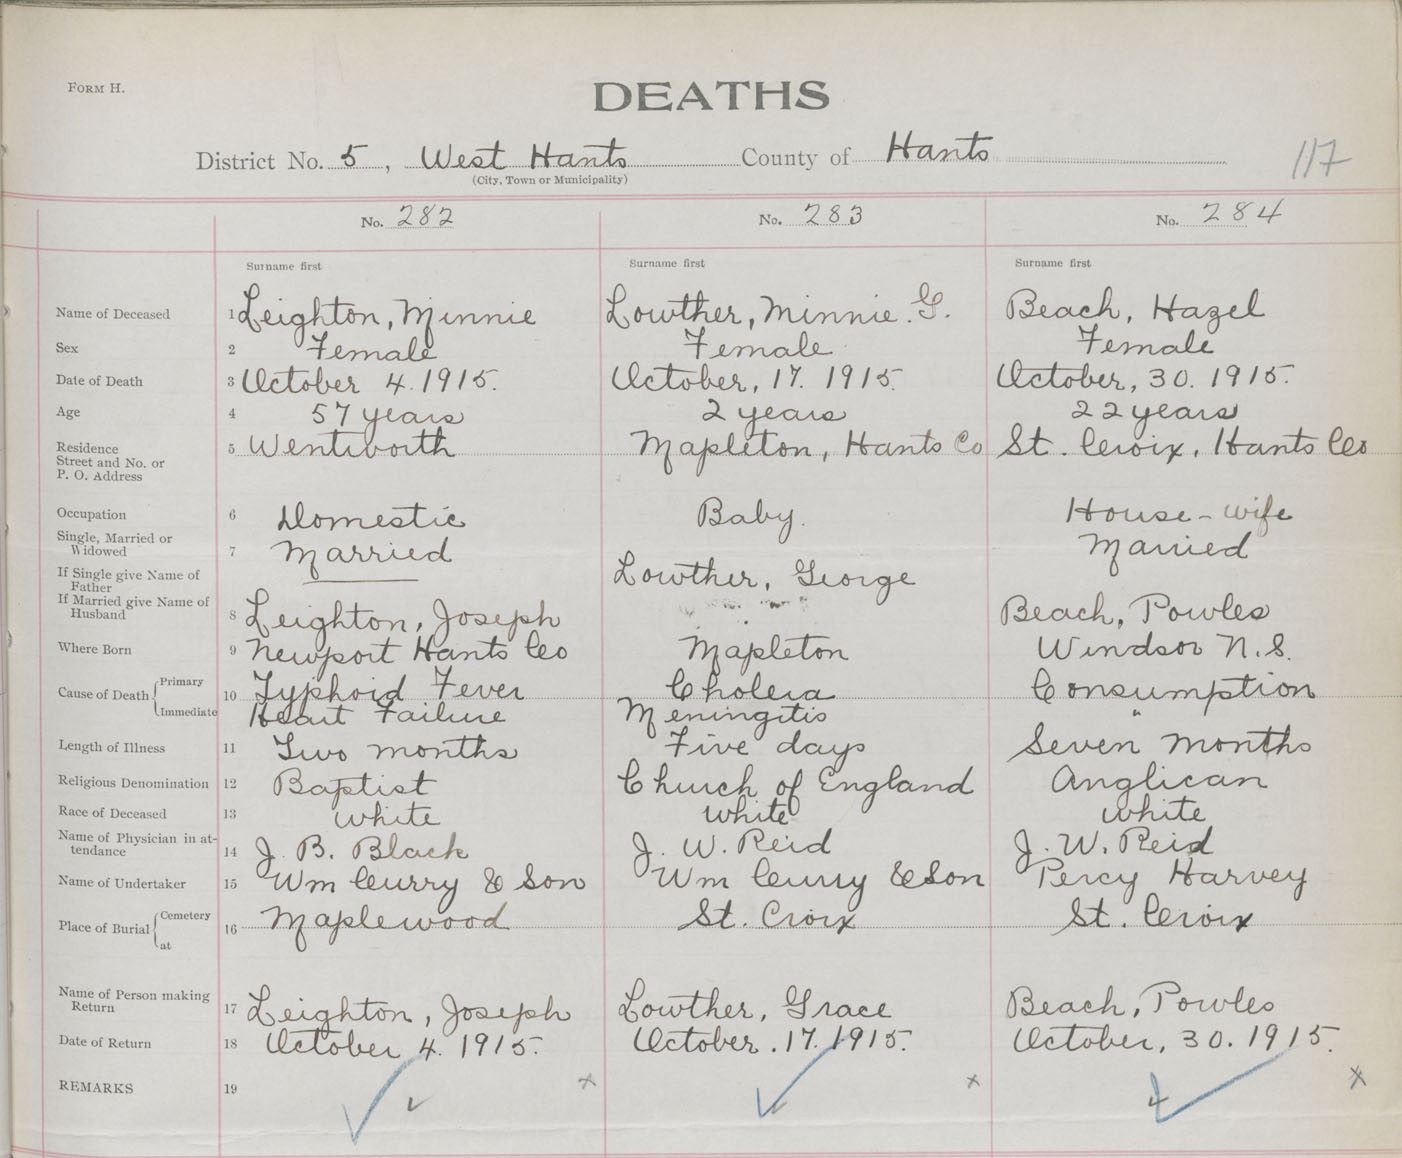 FORM H.
DEATHS
District No. 5, West Hants County of Hants
(City, Town or Municipality)
117
No. 282 No. 283 No. 284
Surname first Surname first Surname first
Name of Deceased 1 Leighton, Minnie Lowther, Minnie. G. Beach, Hazel
Sex 2 Female Female Female
Date of Death 3 October 4. 1915. October, 17. 1915. October, 30. 1915.
Age 4 57 years 2 years 22 years
Residence 5 Wentworth Mapleton, Hants Co St. Croix, Hants Co
Street and No. or
P. O. Address
Occupation 6 Domestic Baby. House-wife
Single, Married or
Widowed 7 Married Married
If Single give Name of
Father Lowther, George
If Married give Name of
Husband 8 Leighton, Joseph Beach, Powles
Where Born 9 Newport Hants Co Mapleton Windsor N.S.
Cause of Death Primary 10 Typhoid Fever Cholera Consumption
Immediate Heart Failure Meningitis "
Length of Illness 11 Two months Five days Seven months
Religious Denomination 12 Baptist Church of England Anglican
Race of Deceased 13 white white white
Name of Physician in at-
tendance 14 J. B. Black J. W. Reid J. W. Reid
Name of Undertaker 15 Wm Curry & Son Wm Curry & Son Percy Harvey
Place of Burial Cemetery 16 Maplewood St. Croix St. Croix
at
Name of Person making
Return 17 Leighton, Joseph Lowther, Grace Beach, Powles
Date of Return 18 October 4. 1915. October. 17. 1915. October, 30. 1915.
REMARKS 19 x x x